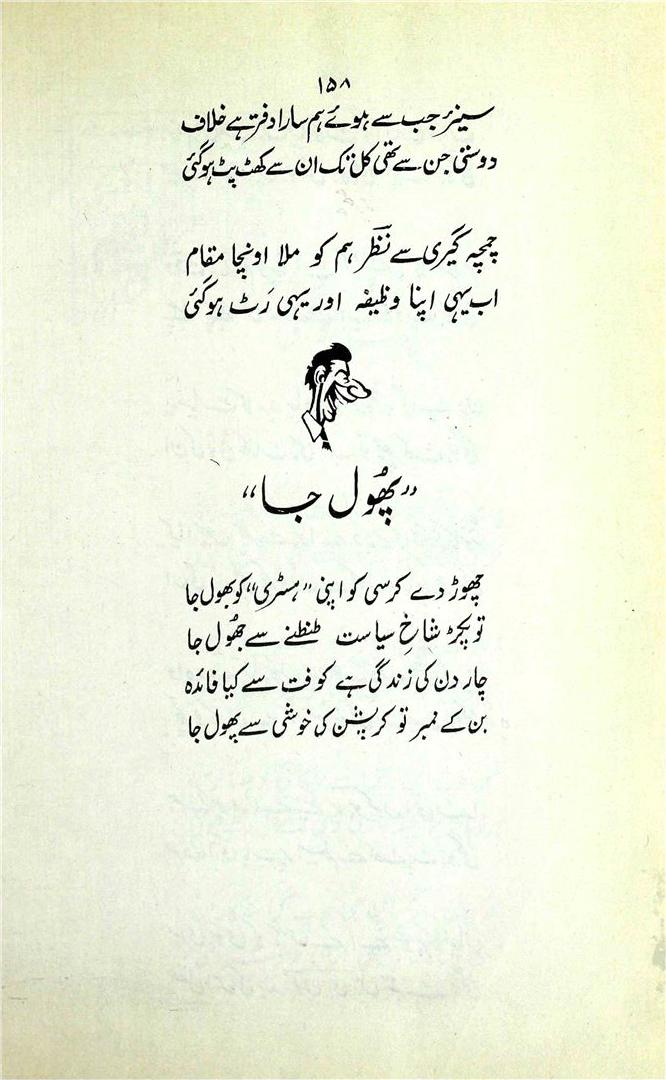 ۱۵۸
سینئر جب سے ہوئے ہم سارا دفتر ہے خلاف
دوستی جن سے تھی کل تک ان سے کھٹ پٹ ہوگئی
چمچہ گیری سے نظر ہم کو ملا اونچا مقام
اب یہی اپنا وظیفہ اور یہی رَٹ ہوگئی
"پھُول جا"
چھوڑ دے کرسی کو اپنی "ہسٹری" کو بھول جا
تو پکڑ شاخِ سیاست طنطنے سے جھُول جا
چار دن کی زندگی ہے کوفت سے کیا فائدہ
بن کے نمبر تو کرپشن کی خوشی سے پھول جا